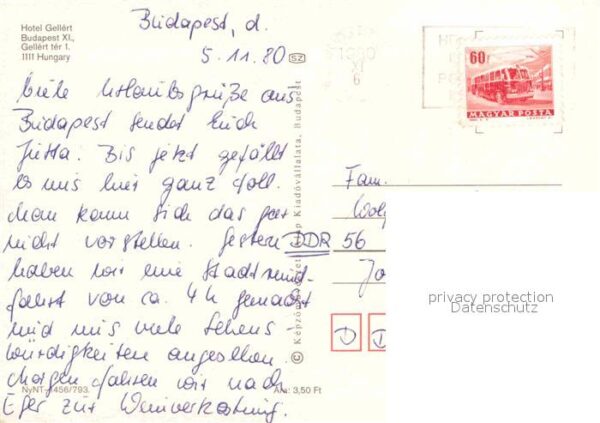 Hotel Gellért
Budapest XI.,
Gellért tér 1.
1111 Hungary
Budapest, d.
5.11.80
SZ
Viele Urlaubsgrüße aus
Budapest sendet Euch
Jutta. Bis jetzt gefällt
es mir hier ganz toll.
Man kann sich das gar
nicht vorstellen. Gestern
haben wir eine Stadtrund-
fahrt von ca. 4 h gemacht
und uns viele Sehens-
würdigkeiten angesehen.
Morgen fahren wir nach
Eger zur Weinverkostung.
NyNT-1456/793.
Ára: 3,50 Ft
Kiadóvállalata, Budapest
1980
XI
6
60f
MAGYAR POSTA
Fam.
DDR 56
D D
privacy protection
Datenschutz